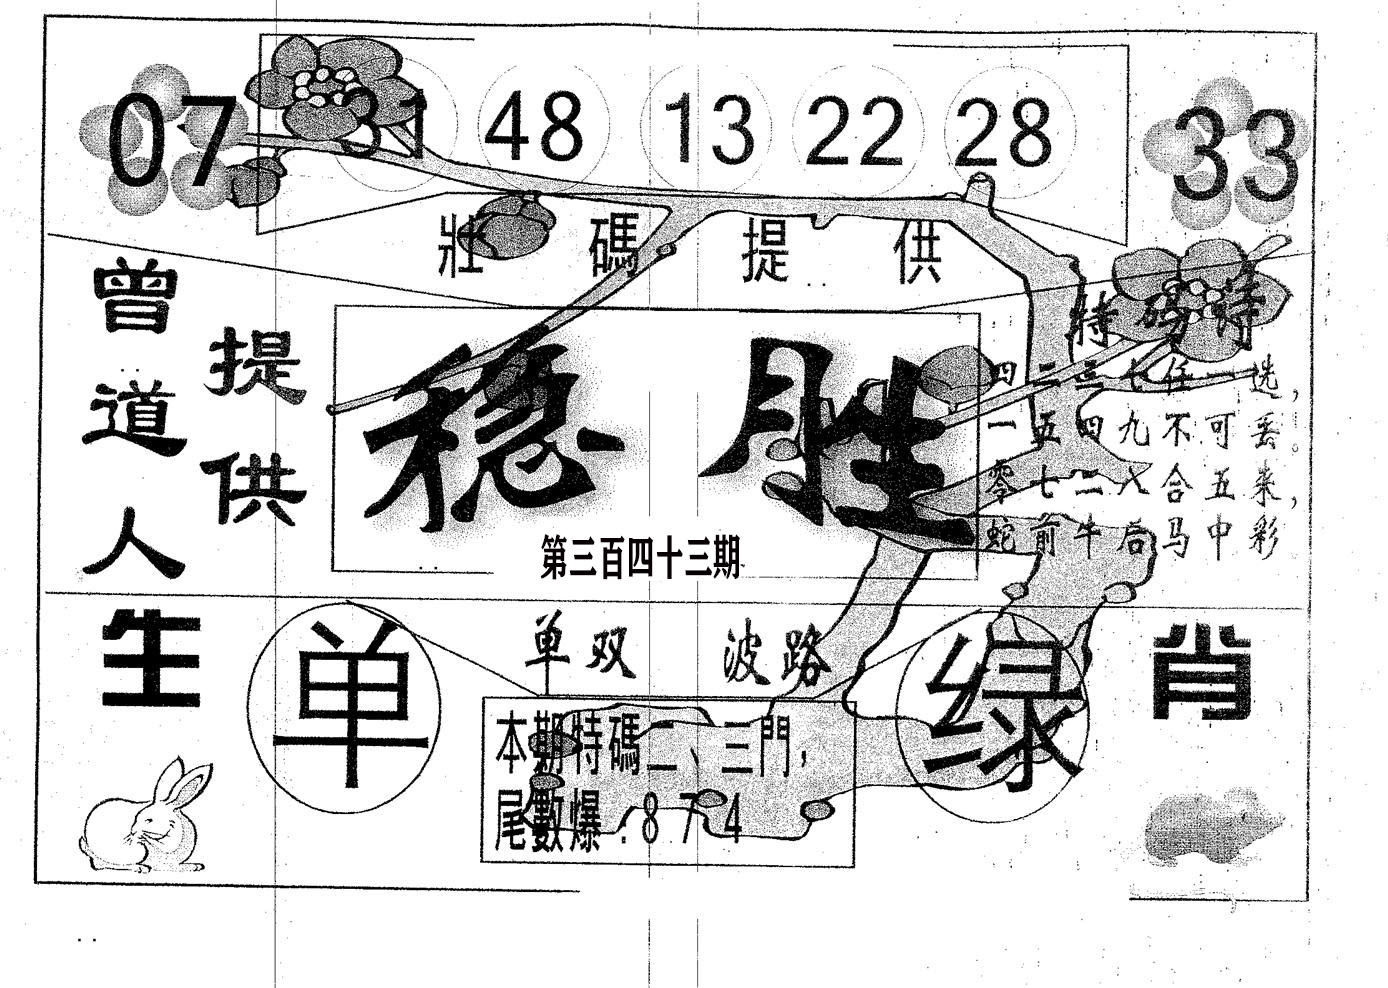 07 31 48 13 22 28 33
壯碼提供
曾道人
提供
稳胜
第三百四十三期
特码诗
四二三七任一选，
一五四九不可丢。
零七二八合五来，
蛇前牛后马中彩
生肖
单双 波路
单
绿
本期特碼二、三門，
尾數爆：874